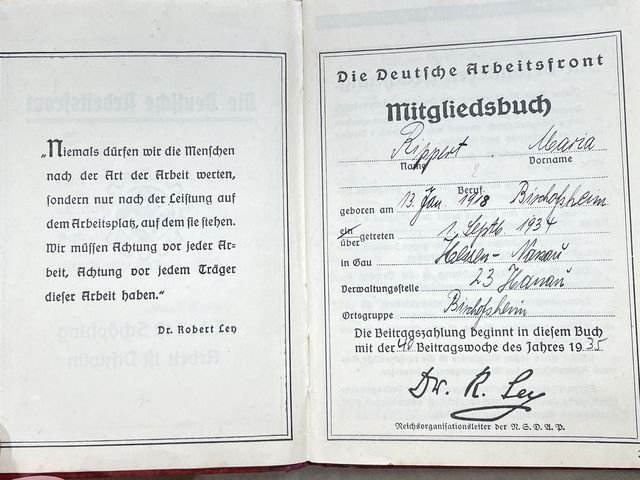 „Niemals dürfen wir die Menschen
nach der Art der Arbeit werten,
sondern nur nach der Leistung auf
dem Arbeitsplatz, auf dem sie stehen.
Wir müssen Achtung vor jeder Ar-
beit, Achtung vor jedem Träger
dieser Arbeit haben.“
Dr. Robert Ley
Die Deutsche Arbeitsfront
Mitgliedsbuch
Rippert, Maria
Name Vorname
Beruf
geboren am 13. Jan 1918 Bischofsheim
ein getreten 1. Septb. 1934
über
in Gau Hessen-Nassau
Verwaltungsstelle 23 Hanau
Ortsgruppe Bischofsheim
Die Beitragszahlung beginnt in diesem Buch
mit der 40 Beitragswoche des Jahres 1935
Dr. R. Ley
Reichsorganisationsleiter der N.S.D.A.P.